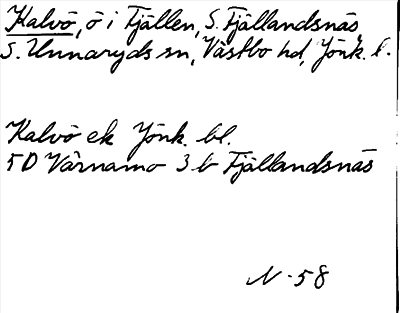 Kalvö, ö i Fjällen, S. Fjällandsnäs,
S. Unnaryds sn, Västbo hd, Jönk. l.
Kalvö ek Jönk. bl.
5D Värnamo 3 b Fjällandsnäs
N-58